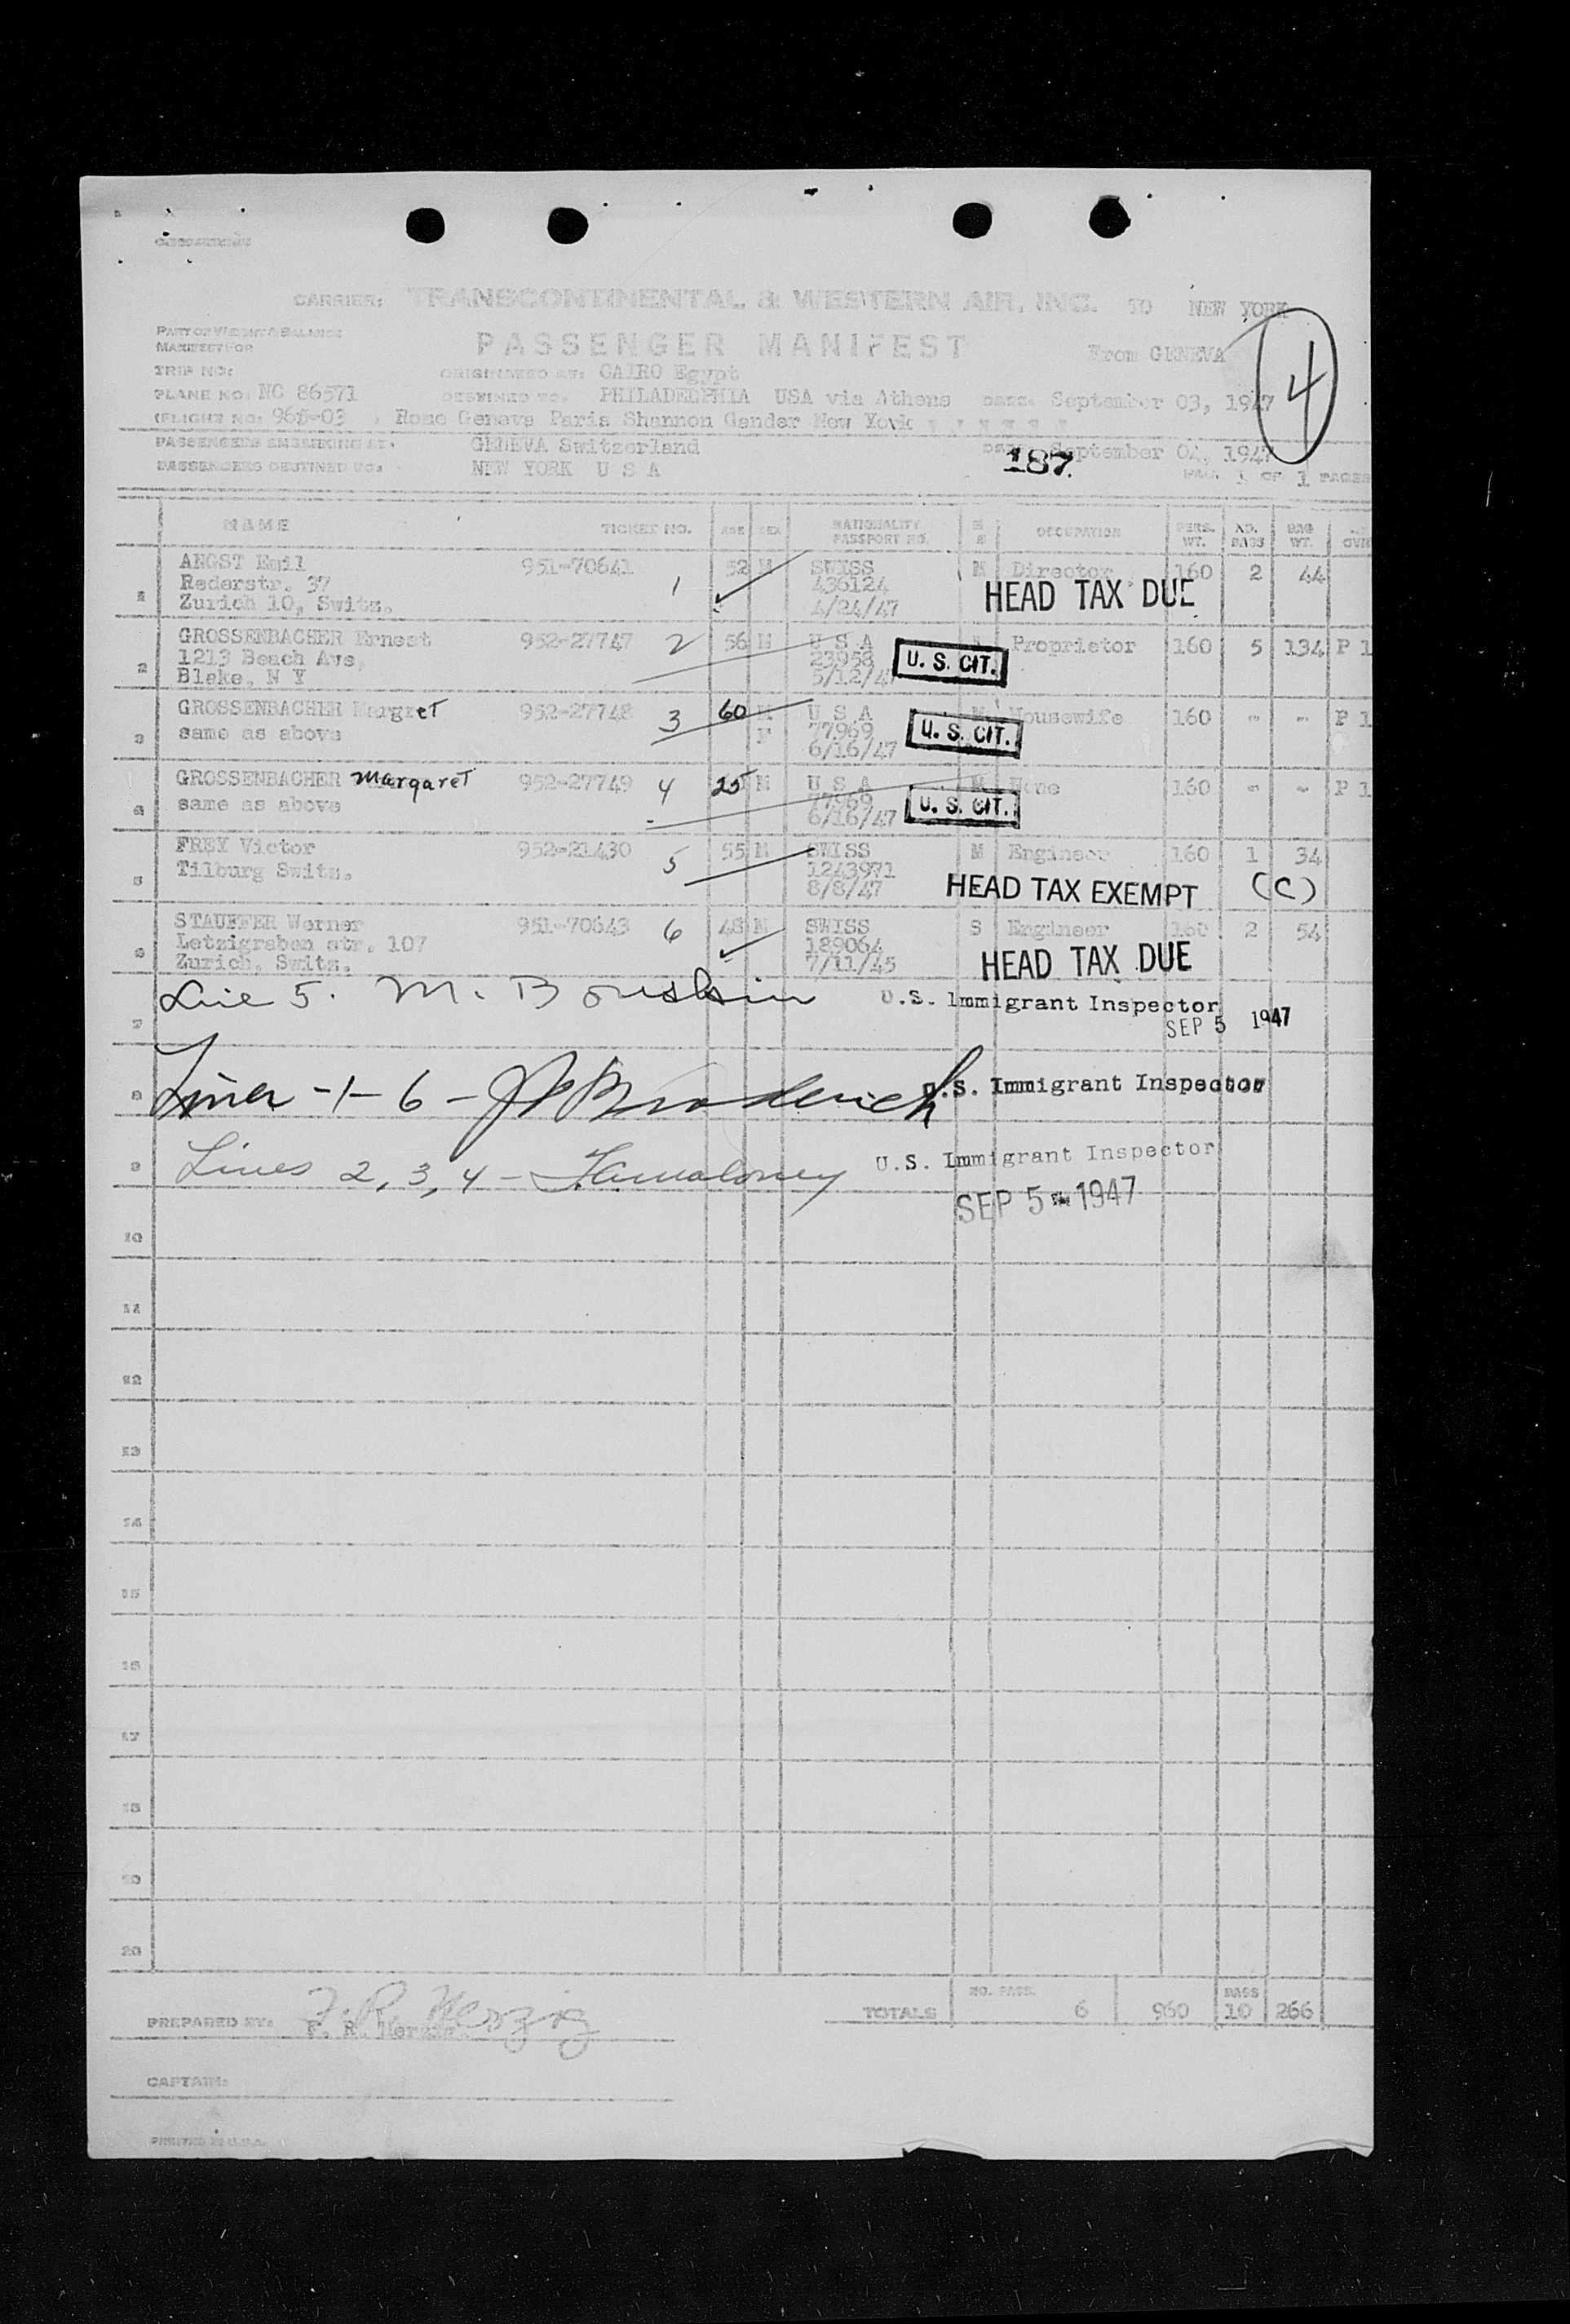 CARRIER: TRANSCONTINENTAL & WESTERN AIR, INC. TO NEW YORK
PART OF WEIGHT & BALANCE
MANIFEST FOR
PASSENGER MANIFEST From GENEVA
4
TRIP NO: ORIGINATED AT: CAIRO Egypt
PLANE NO: NC 86571 DESTINED TO: PHILADELPHIA USA via Athens DATE: September 03, 1947
(FLIGHT NO: -03 , Rome Geneva Paris Shannon Gander New York
PASSENGERS EMBARKING AT: GENEVA Switzerland DATE: September 04, 1947
187
PASSENGERS DESTINED TO: NEW YORK U S A PAGE 1 OF 1 PAGES
NAME TICKET NO. AGE SEX NATIONALITY PASSPORT NO. M S OCCUPATION PERS. WT. NO. BAGS BAG WT.
1 ANGST Emil 951-70641 1 52 M SWISS M Director 160 2 44
Rederstr. 37 436124 HEAD TAX DUE
Zurich 10, Switz. 4/24/47
2 GROSSENBACHER Ernest 952-27747 2 56 M U S A Proprietor 160 5 134 P 1
1213 Beach Ave, 23958 U. S. CIT.
Blake, N Y 5/12/47
3 GROSSENBACHER Margret 952-27748 3 60 F U S A M Housewife 160 - - P 1
same as above 77969 U. S. CIT.
6/16/47
4 GROSSENBACHER Margaret 952-27749 4 25 M U S A None 160 - - P 1
same as above 77969 U. S. CIT.
6/16/47
5 FREY Victor 952-21430 5 55 M SWISS M Engineer 160 1 34
Tilburg Switz. 1243971 HEAD TAX EXEMPT (C)
8/8/47
6 STAUFFER Werner 951-70643 6 48 M SWISS S Engineer 160 2 54
Letzigraben str. 107 189064 HEAD TAX DUE
Zurich, Switz. 7/11/45
7 Line 5. M. U.S. Immigrant Inspector
SEP 5 1947
8 Lines -1-6- Broderick U.S. Immigrant Inspector
9 Lines 2, 3, 4 - U.S. Immigrant Inspector
SEP 5 - 1947
10
11
12
13
14
15
16
17
18
19
20
PREPARED BY: F. R. Herzig
F. R. Herzig
TOTALS NO. PASS. 6 960 BAGS 10 266
CAPTAIN:
PRINTED IN U.S.A.